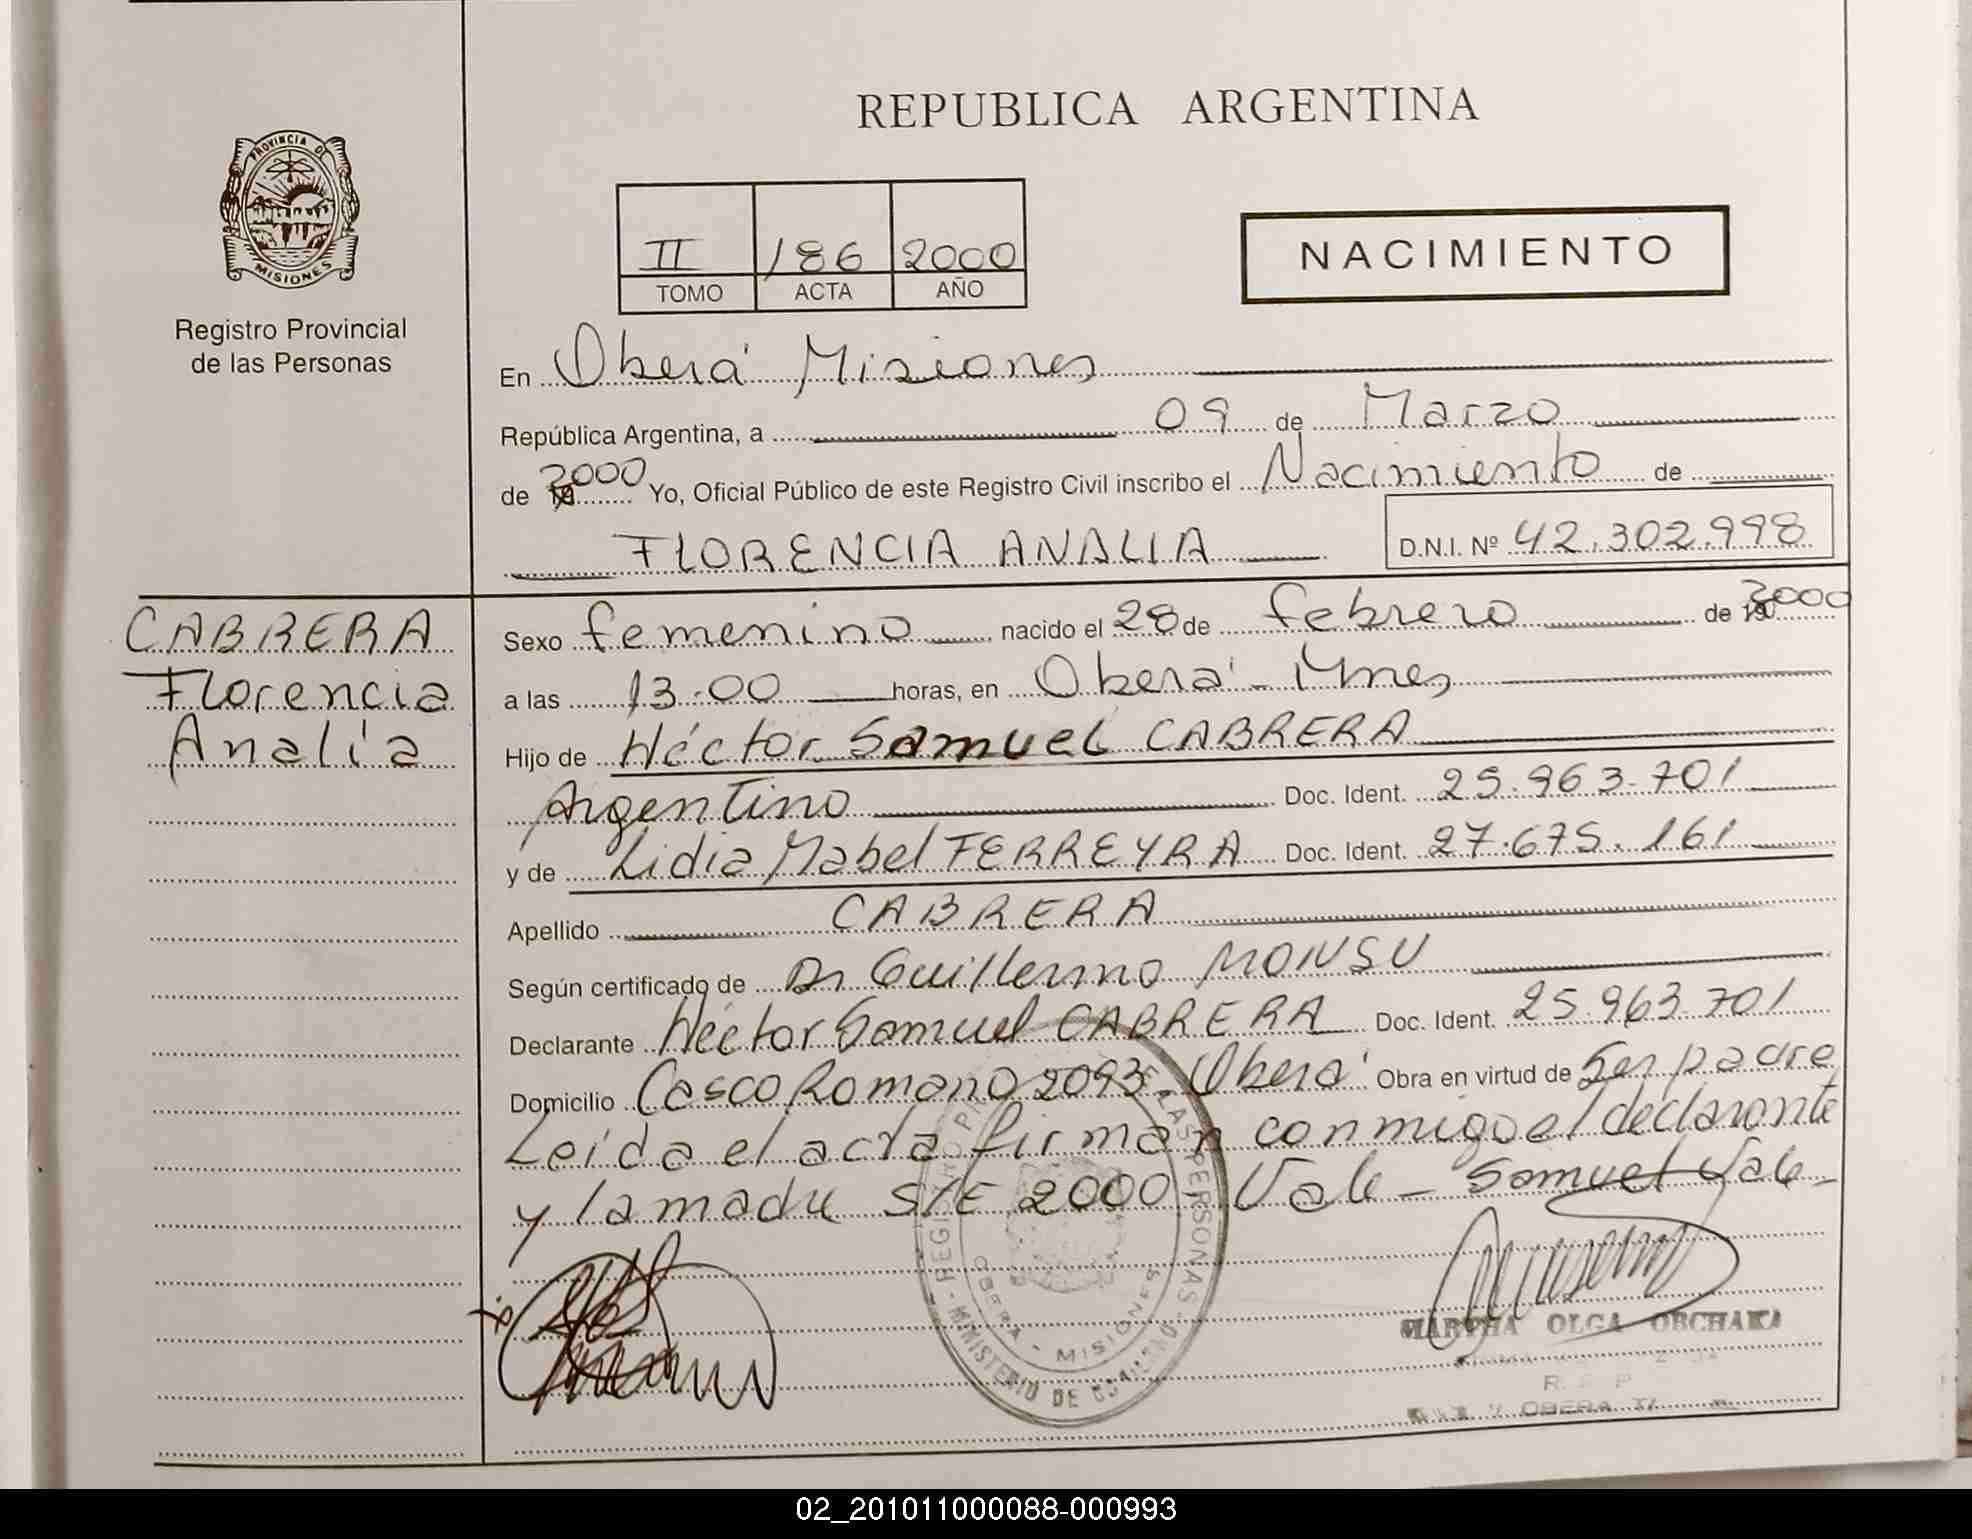 REPUBLICA ARGENTINA
PROVINCIA DE
MISIONES
Registro Provincial
de las Personas
II 186 2000
TOMO ACTA AÑO
NACIMIENTO
En Oberá Misiones
República Argentina, a 09 de Marzo
de 2000 Yo, Oficial Público de este Registro Civil inscribo el Nacimiento de
FLORENCIA ANALIA D.N.I. Nº 42.302.998
CABRERA
Florencia
Analía
Sexo femenino nacido el 28 de febrero de 2000
a las 13.00 horas, en Oberá - Mnes
Hijo de Héctor Samuel CABRERA
Argentino Doc. Ident. 25.963.701
y de Lidia Mabel FERREYRA Doc. Ident. 27.675.161
Apellido CABRERA
Según certificado de Dr Guillermo MONSU
Declarante Héctor Samuel CABRERA Doc. Ident. 25.963.701
Domicilio Casco Romano 2093 - Oberá Obra en virtud de Ser padre
Leída el acta firman conmigo el declarante
y la madre S/E 2000 - Vale - Samuel Vale -
OBERA - MISIONES
MARTHA OLGA ORCHAKA
02_201011000088-000993